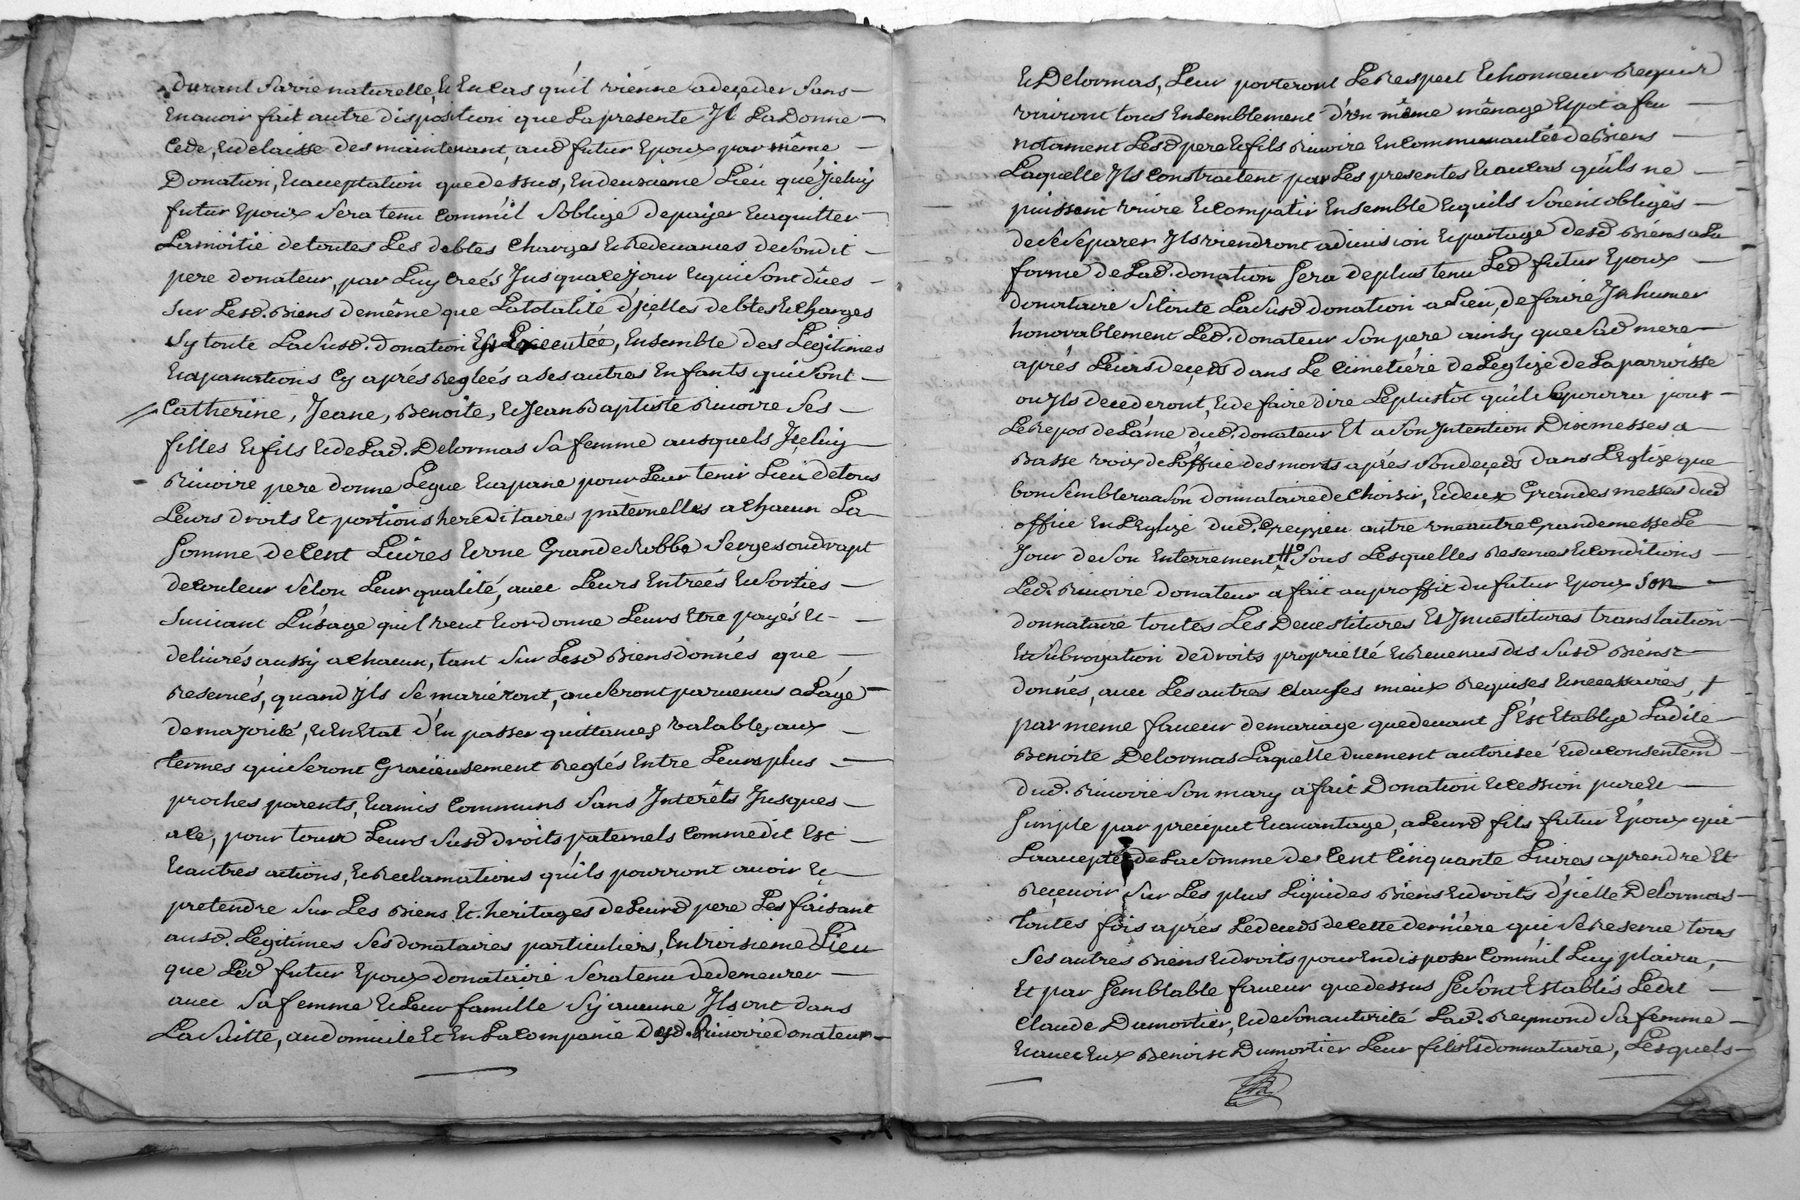 durant sa vie naturelle, et en cas qu'il vienne a deçeder sans
en avoir fait autre disposition que la presente Jl la donne
cede, et delaisse des maintenant, aud futur Epoux par même
Donation, et acceptation que dessus, en deuxieme Lieu que Jceluy
futur Epoux sera tenu comm'il s'oblige de payer et acquitter
la moitié de toutes les debtes charges et Redevances de son dit
pere donateur, par luy creés Jusqu'a ce jour et qui sont dûes
sur lesd. Biens de même que la totalité d'jcelles debtes et charges
sy toute la susd. donation est Executée, Ensemble des Légitimes
et apanations cy aprés Regleés a ses autres Enfants qui sont
Catherine, Jeane, Benoite, et Jean Baptiste Rivoire ses
filles et fils et de lad. Delormas sa femme ausquels Jceluy
Rivoire pere donne Legue et apane pour leur tenir Lieu de tous
Leurs droits et portions hereditaires paternelles a chacun La
somme de cent Livres et une Grande Robbe serge ou drapt
de couleur selon leur qualité, avec leurs Entreés et sorties
suivant l'usage qu'il veut et ordonne leurs etre payés et
delivrés aussy a chacun, tant sur lesd Biens donnés que
Reservés, quand Jls se mariéront, ou seront parvenus a l'âge
de majorité, et en Etat d'en passer quittances valables, aux
termes qui seront Gracieusement Reglés Entre leurs plus
proches parents, et amis communs sans Jnterêts Jusques
a ce, pour toux leurs susd droits paternels comme dit est
et autres actions, et Reclamations qu'ils pourront avoir et
pretendre sur les Biens et heritages de leurd pere les faisant
ausd. Legitimes ses donataires particuliers, En troisieme Lieu
que led futur Epoux donataire sera tenu de demeurer
avec sa femme et leur famille sy aucune Jls ont dans
La suitte, au domicile et En la compagnie dud. Rivoire donateur
et Delormas, leur porteront le Respect et honneur Requis
vivront tous Ensemblement d'un même ménage et pot a feu
notament lesd pere et fils Rivoire en communauté de Biens
Laquelle Jls constractent par les presentes et au cas qu'ils ne
puissent vivre et compatir Ensemble et qu'ils soient obligés
de se séparer Jls viendront a division et partage desd Biens a la
forme de lad. donation sera de plus tenu led futur Epoux
donataire si toute la susd donation a Lieu, de faire Jnhumer
honorablement led. donateur son pere ainsy que sad mere
aprés leurs deçeds dans le cimetiére de l'eglize de la parroisse
ou Jls decederont, et de faire dire le plustôt qu'il le pourra pour
le Repos de l'ame dud. donateur et a son Jntention Dix messes a
Basse voix de l'office des morts aprés son deçeds dans l'Eglize que
bon semblera a son donnataire de choisir, et deux Grandes messes dud
office En l'Eglize dud. Creyzieu outre une autre Grande messe le
Jour de son Enterrement # sous lesquelles Reserves et conditions
Led. Rivoire donateur a fait au proffit du futur Epoux son
donnataire toutes les Devestitures et Jnvestitures translation
et subrogation de droits proprieté et Revenus des susd Biens
donnés, avec les autres clauses mieux Requises et necessaires, +
par meme faveur de mariage que devant s'est Etablye Ladite
Benoite Delormas Laquelle duement autorisée et du consentemd
dud. Rivoire son mary a fait Donation et cession pure et
simple par preciput et avantage, a leurd fils futur Epoux qui
L'a accepté de la somme des Cent cinquante Livres a prendre et
Reçevoir sur les plus Liquides Biens et droits d'jcelle Delormas
toutes fois aprés le deceds de cette derniére qui se Reserve tous
ses autres Biens et droits pour en disposer comm'il luy plaira,
Et par semblable faveur que dessus se sont Establis ledit
Claude Dumortier, et de son autorité Lad. Reymond sa femme
et avec Eux Benoist Dumortier leur fils et donnataire, Lesquels